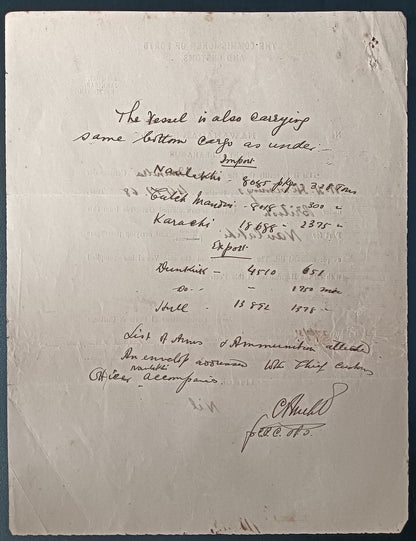 The Vessel is also carrying
same bottom cargo as under:-
Import
Navlakhi - 8085 pkgs 328 Tons
Cutch Mandvi - 8018 300 "
Karachi 18688 - 2375 "
Export
Dunkirk - 4510 651
Do - - 1750
Hull - 13852 1378 -
List of Arms & Ammunition attached
An envelope addressed with Chief Customs
Navlakhi
Officer accompanies.
for